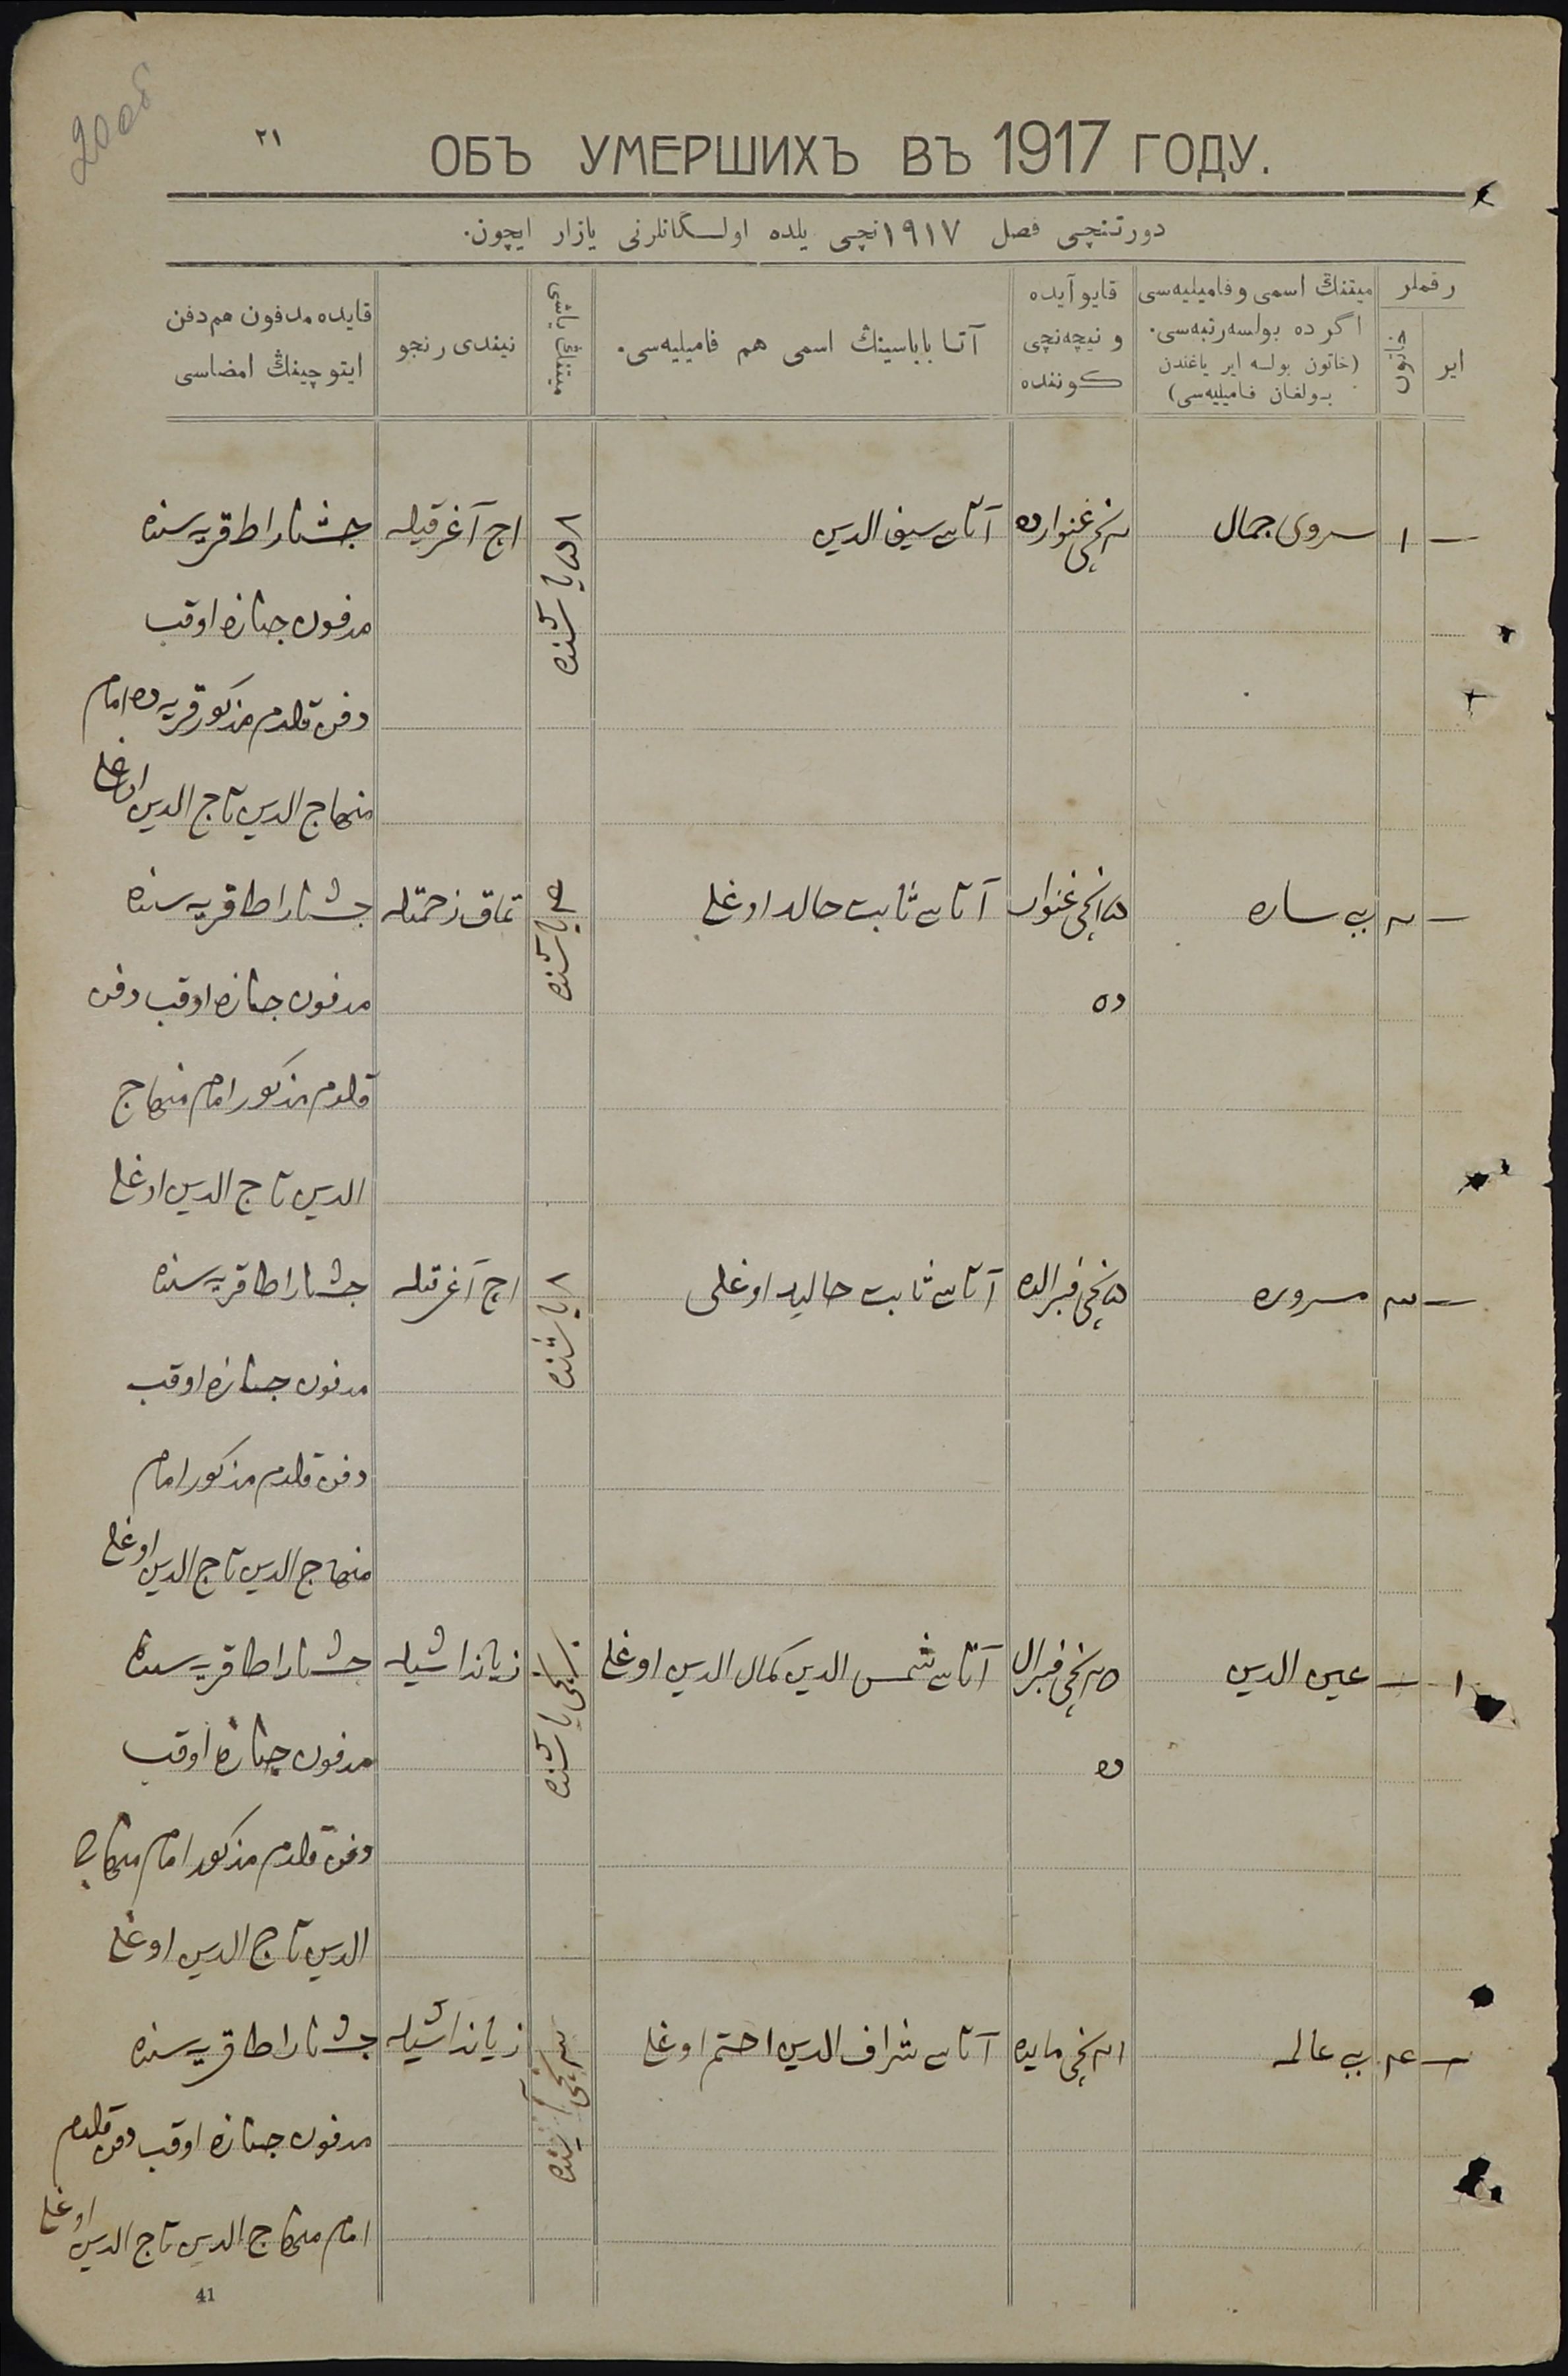 ۲۱
ОБЪ УМЕРШИХЪ ВЪ 1917 ГОДУ.
دورتنچی فصل ۱۹۱۷نچی یلده اولـگانلرنی یازار ایچون.
رقملر
ایر
خاتون
میتنڭ اسمی و فامیلیه‌سی
اگر ده بولسه رتبه‌سی.
(خاتون بولسه ایر یاغندن
بـولغان فـامیلیه‌سی)
قایو آیده
و نیچه‌نچی
کـوننده
آتـا باباسینڭ اسمی هم فامیلیه‌سی.
میتنڭ یاشی
نیندی رنجو
قایده مدفون هم دفن
ایتو چینڭ امضاسی
— ۱ سروی جمال
۲نچی غنوارده
آتاسی سیف الدین
۵۸ یاشنده
اچ آغرقیله
جشنار اطا قریه سنده
مدفون جنازه اوقب
دفن قلدم مذکور قریه ده امام
منهاج الدین تاج الدین اوغلی
— ۲ بی ساره
۱۵نچی غنوار
ده
آتاسی ثابت حالد اوغلی
یاشنده
تماق زحمتله
جشنار اطا قریه سنده
مدفون جنازه اوقب دفن
قلدم مذکور امام منهاج
الدین تاج الدین اوغلی
— ۳ مسروره
۵نچی فبرالده
آتاسی ثابت حالید اوغلی
۸ یاشنده
اچ آغرقله
جشنار اطا قریه سنده
مدفون جنازه اوقب
دفن قلدم مذکور امام
منهاج الدین تاج الدین اوغلی
۱ — عین الدین
۲۵نچی فبرال
ده
آتاسی شمس الدین کمال الدین اوغلی
نچی یاشنده
زیانداشیله
جشنار اطا قریه سنده
مدفون جنازه اوقب
دفن قلدم مذکور امام منهاج
الدین تاج الدین اوغلی
— ۴ بی عالمه
۲۱نچی مایده
آتاسی شراف الدین احتم اوغلی
۳نچی آینده
زیانداشیله
جشنار اطا قریه سنده
مدفون جنازه اوقب دفن قلدم
امام منهاج الدین تاج الدین اوغلی
41